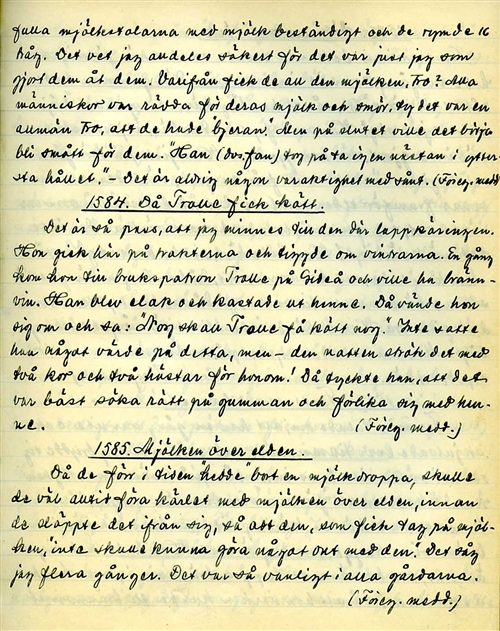 fulla mjölkstalarna med mjölk beständigt och de rymde 16
kåg. Det vet jag alldeles säkert för det var just jag som
gjort dem åt dem. Varifrån fick de all den mjölken, tro? Alla
människor var rädda för deras mjölk och smör, ty det var en
allmän tro, att de hade "bjeran". Men på slutet ville det börja
bli smått för dem. "Han (dvs. fan) tog på ta igen nästan i ytter-
sta hållet." – Det är aldrig någon varaktighet med sånt. (Föreg. medd.)
1584. Då Trolle fick kött.
Det är så pass, att jag minnes till den där lappkäringen.
Hon gick här på trakterna och tiggde om vintrarna. En gång
kom hon till brukspatron Trolle på Gideå och ville ha bränn-
vin. Han blev elak och kastade ut henne. Då vände hon
sig om och sa: "Nog skall Trolle få kött nog." Inte satte
han något värde på detta, men – den natten strök det med
två kor och två hästar för honom! Då tyckte han, att det
var bäst söka rätt på gumman och förlika sig med hen-
ne. (Föreg. medd.)
1585. Mjölken över elden.
Då de förr i tiden "ledde" bort en mjölkdroppa, skulle
de väl alltid föra kärlet med mjölken över elden, innan
de släppte det ifrån sig, så att den, som fick tag på mjöl-
ken, "inte skulle kunna göra något ont med den". Det såg
jag flera gånger. Det var så vanligt i alla gårdarna.
(Föreg. medd.)